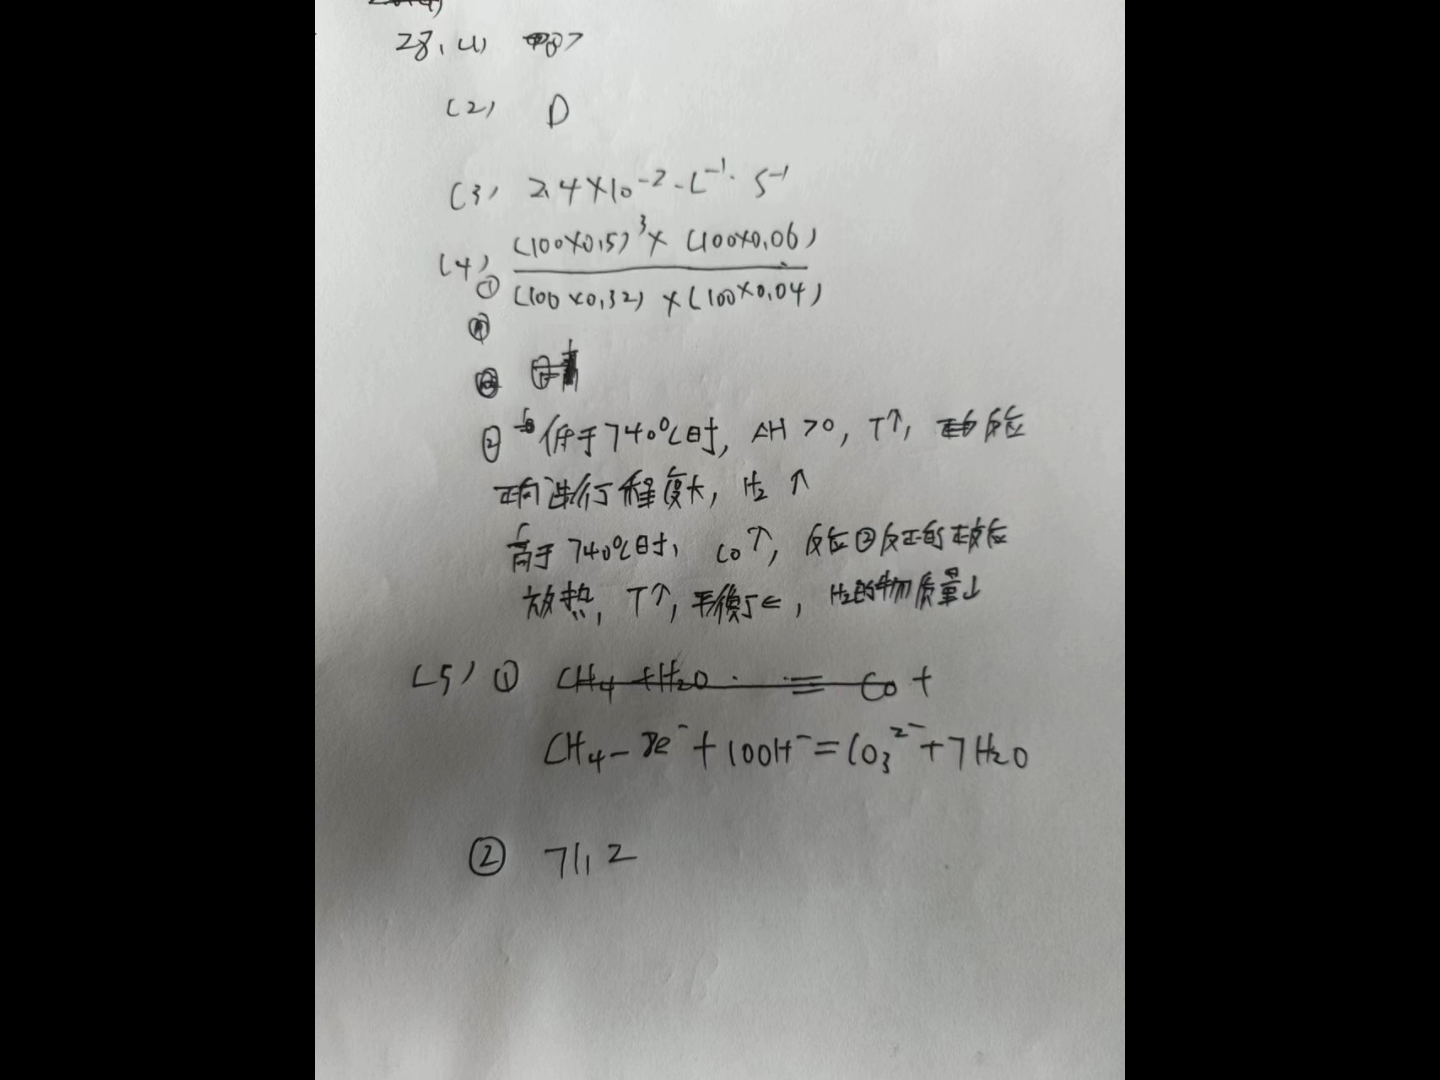 28. (1) 87
(2) D
(3) 2.4×10⁻²·L⁻¹·S⁻¹
(4) ① (100×0.5)³×(100×0.06)
(100×0.32)×(100×0.04)
② 低于740℃时, ΔH>0, T↑, 反应
正向进行程度大, H₂↑
高于740℃时, CO↑, 反应②反正的正反应
放热, T↑, 平衡逆←, H₂的物质量↓
(5) ① CH₄+H₂O = CO+
CH₄-8e⁻+10OH⁻=CO₃²⁻+7H₂O
② 71.2